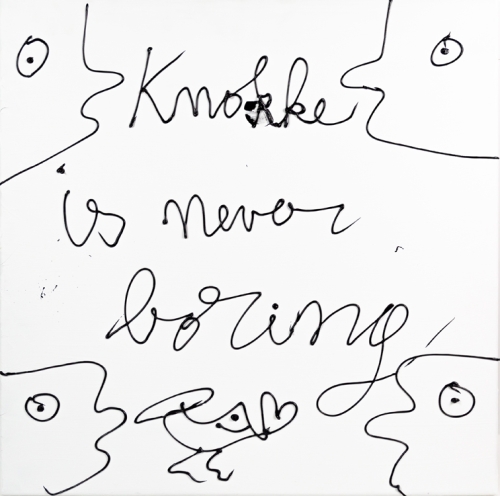 Knokke
is never
boring